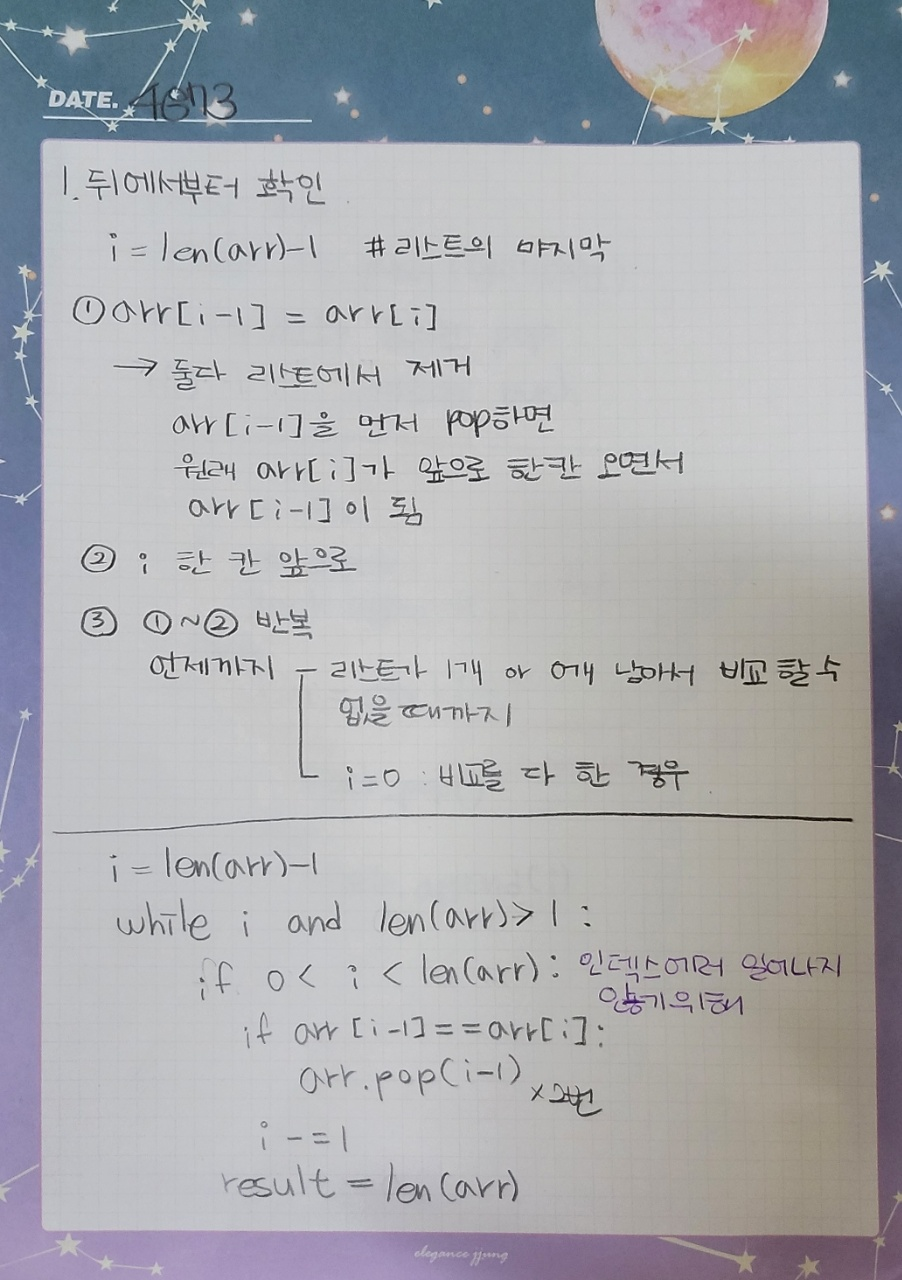 DATE. 4873
1. 뒤에서부터 확인
i = len(arr)-1 # 리스트의 마지막
① arr[i-1] = arr[i]
→ 둘다 리스트에서 제거
arr[i-1]을 먼저 pop하면
원래 arr[i]가 앞으로 한칸 오면서
arr[i-1]이 됨
② i 한 칸 앞으로
③ ①~② 반복
언제까지 - 리스트가 1개 or 0개 남아서 비교 할 수
없을 때까지
i=0 : 비교를 다 한 경우
i = len(arr)-1
while i and len(arr)>1 :
if 0 < i < len(arr) : 인덱스에러 일어나지
않기위해
if arr[i-1]==arr[i]:
arr.pop(i-1) x2번
i -=1
result = len(arr)
elegance jjung